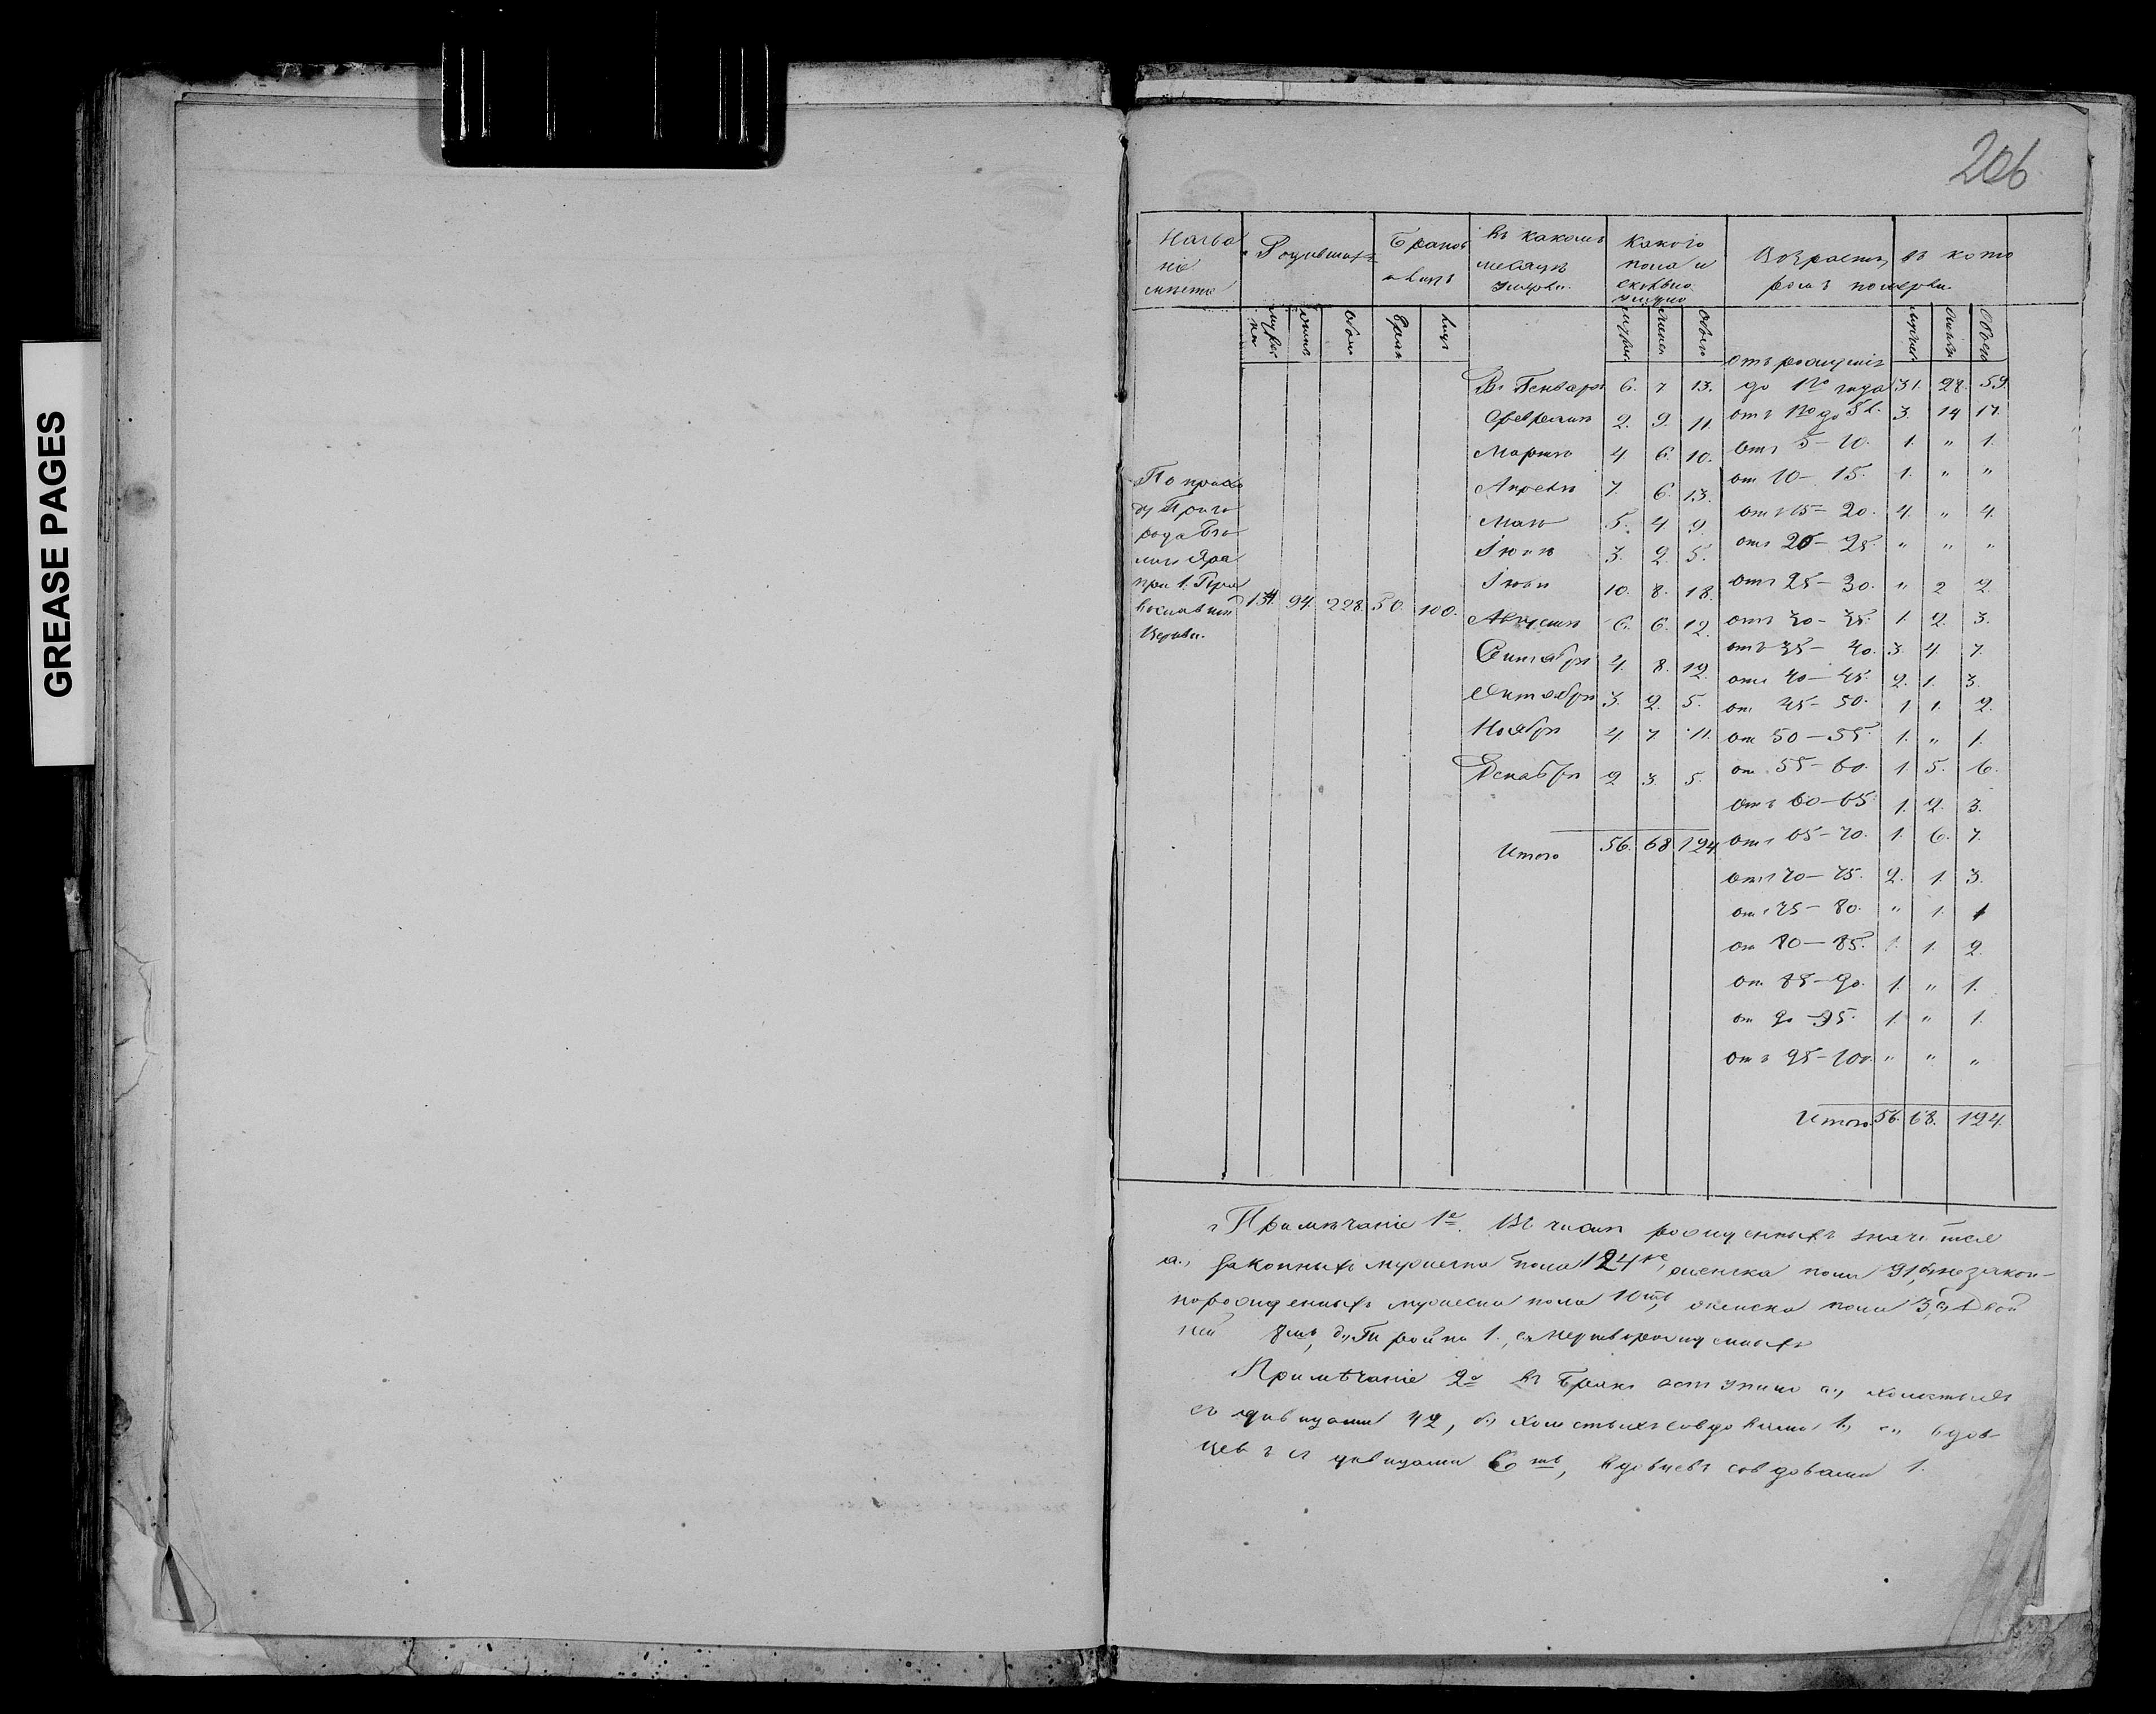 GREASE PAGES
206
Назва
ніе
Родившихся
Браковъ
и лицъ
Въ какомъ
месяцѣ
умерли.
Какого
пола и
сколько
умерло
Возрастъ, въ кото
ромъ померли
Бракъ лицъ
отъ рожденія
Въ Генварѣ 6. 7 13. до 1го года 31. 28. 59.
Февралѣ 2. 9. 11. отъ 1го до 5 л. 3. 14 17.
Мартѣ 4 6. 10. отъ 5–10. 1. " 1.
Апрелѣ 7. 6. 13. от 10– 15. 1. " "
Маѣ 5. 4. 9. отъ 15– 20. 4. " 4.
Іюнѣ 3. 2. 5. отъ 20– 25. " " "
Іюлѣ 10. 8. 18. отъ 25– 30. " 2 2.
Августѣ 6. 6. 12. отъ 30– 35. 1. 2. 3.
Сентябрѣ 4. 8. 12. отъ 35– 40. 3. 4. 7.
Октябрѣ 3. 2. 5. отъ 40– 45. 2. 1. 3.
от 45– 50. 1. 1. 2.
Ноябрѣ 4. 7. 11. от 50–55. 1. " 1.
Декабрѣ 2 3. 5. от 55– 60. 1. 5. 6.
отъ 60–65. 1. 2. 3.
Итого 56. 68. 124. отъ 65–70. 1. 6. 7.
отъ 70–75. 2. 1. 3.
отъ 75– 80. " 1. 1
от 80– 85. 1. 1. 2.
от 85–90. 1. " 1.
от 90–95. 1. " 1.
отъ 95–100. " " "
Итого. 56. 68. 124.
По прихо
ду Приго
рода
Яра
при
Церкви.
134. 94. 228. 50. 100.
Примѣчаніе 1е. Въ числѣ рожденныхъ
а., Законныхъ мужеска пола 124, женска пола 91, б., незакон-
норожденныхъ мужеска пола 10ть, женска пола 3, в., Двой
ней 8мь, д., Тройня 1., е., Мертворожденныхъ
Примѣчаніе 2е Въ Бракъ вступило а., холостыхъ
съ дѣвицами 42, б., Холостыхъ со вдовами 1., в., вдов-
цевъ съ дѣвицами 6ть, вдовцевъ со вдовами 1.